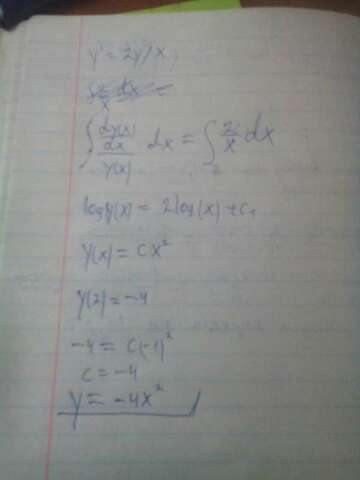 y' = 2y/x
∫ (dy(x)/dx)/y(x) dx = ∫ 2/x dx
log y(x) = 2 log(x) + c₁
y(x) = cx²
y(2) = -4
-4 = c(-1)²
c = -4
y = -4x²